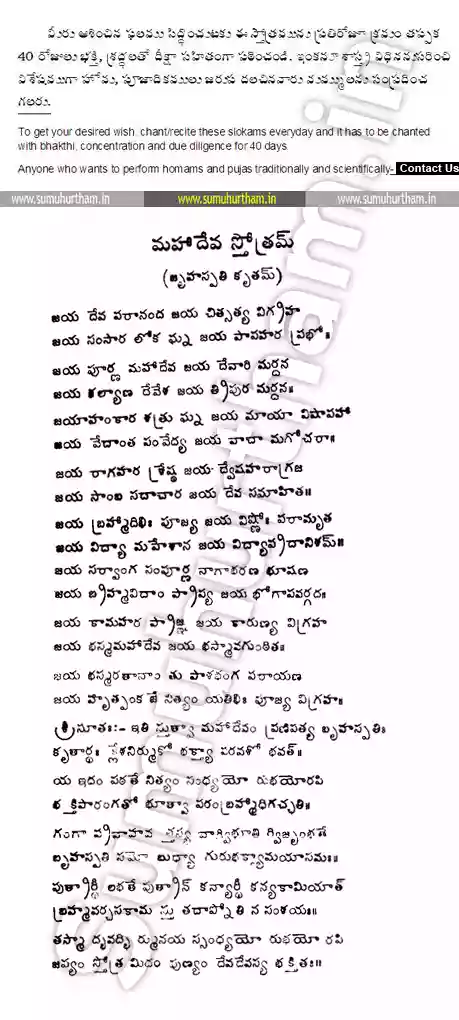 మీరు ఆశించిన ఫలము సిద్ధించుటకు ఈ స్తోత్రమును ప్రతిరోజూ క్రమం తప్పక
40 రోజులు భక్తి, శ్రద్ధలతో దీక్షా సహితంగా పఠించండి. ఇంకనూ శాస్త్ర విధిననుసరించి
విశేషముగా హోమ, పూజాదికములు జరుప దలచినవారు మమ్ములను సంప్రదించ
గలరు.
To get your desired wish, chant/recite these slokams everyday and it has to be chanted
with bhakthi, concentration and due diligence for 40 days.
Anyone who wants to perform homams and pujas traditionally and scientifically- Contact Us
www.sumuhurtham.in www.sumuhurtham.in www.sumuhurtham.in
మహాదేవ స్తోత్రమ్
(బృహస్పతి కృతమ్)
జయ దేవ పరానంద జయ చిత్సత్య విగ్రహ
జయ సంసార లోక ఘ్న జయ పాపహర ప్రభో॥
జయ పూర్ణ మహాదేవ జయ దేవారి మర్దన
జయ కళ్యాణ దేవేశ జయ త్రిపుర మర్దన॥
జయాహంకార శత్రు ఘ్న జయ మాయా విషాపహా
జయ వేదాంత సంవేద్య జయ వాచా మగోచరా॥
జయ రాగహర శ్రేష్ఠ జయ ద్వేషహరాగ్రజ
జయ సాంబ సదాచార జయ దేవ సమాహిత॥
జయ బ్రహ్మాదిభిః పూజ్య జయ విష్ణోః పరామృత
జయ విద్యా మహేశాన జయ విద్యాప్రదానిశమ్॥
జయ సర్వాంగ సంపూర్ణ నాగాభరణ భూషణ
జయ బ్రహ్మవిదాం ప్రాప్య జయ భోగాపవర్గదః॥
జయ కామహర ప్రాజ్ఞ జయ కారుణ్య విగ్రహ
జయ భస్మమహాదేవ జయ భస్మావగుంఠితః॥
జయ భస్మరతానాం తు పాశభంగ పరాయణ
జయ హృత్పంక జే నిత్యం యతిభిః పూజ్య విగ్రహః॥
శ్రీసూతః:- ఇతి స్తుత్వా మహాదేవం ప్రణిపత్య బృహస్పతిః
కృతార్థః క్లేశనిర్ముకో భక్త్యా పరవశో భవత్॥
య ఇదం పఠతే నిత్యం సంధ్యయో రుభయోరపి
భక్తిపారంగతో భూత్వా పరంబ్రహ్మాధిగచ్ఛతి॥
గంగా ప్రవాహవ త్తస్య వాగ్విభూతి ర్విజృంభతే
బృహస్పతి సమో బుధ్యా గురుభక్త్యామయాసమః॥
పుత్రార్థీ లభతే పుత్రాన్ కన్యార్థీ కన్యకామియాత్
బ్రహ్మవర్చసకామ స్తు తదాప్నోతి న సంశయః॥
తస్మా ద్భవద్భి ర్మునయ స్సంధ్యయో రుభయో రపి
జప్యం స్తోత్ర మిదం పుణ్యం దేవదేవస్య భక్తితః॥
sumuhurtham.in